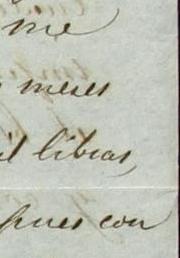 me
meses
libras,
pues con